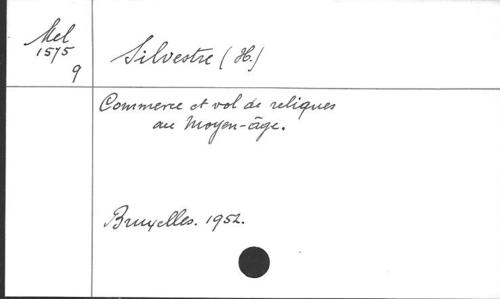 Mel
1575
9
Silvestre (H.)
Commerce et vol de reliques
au Moyen-âge.
Bruxelles. 1952.